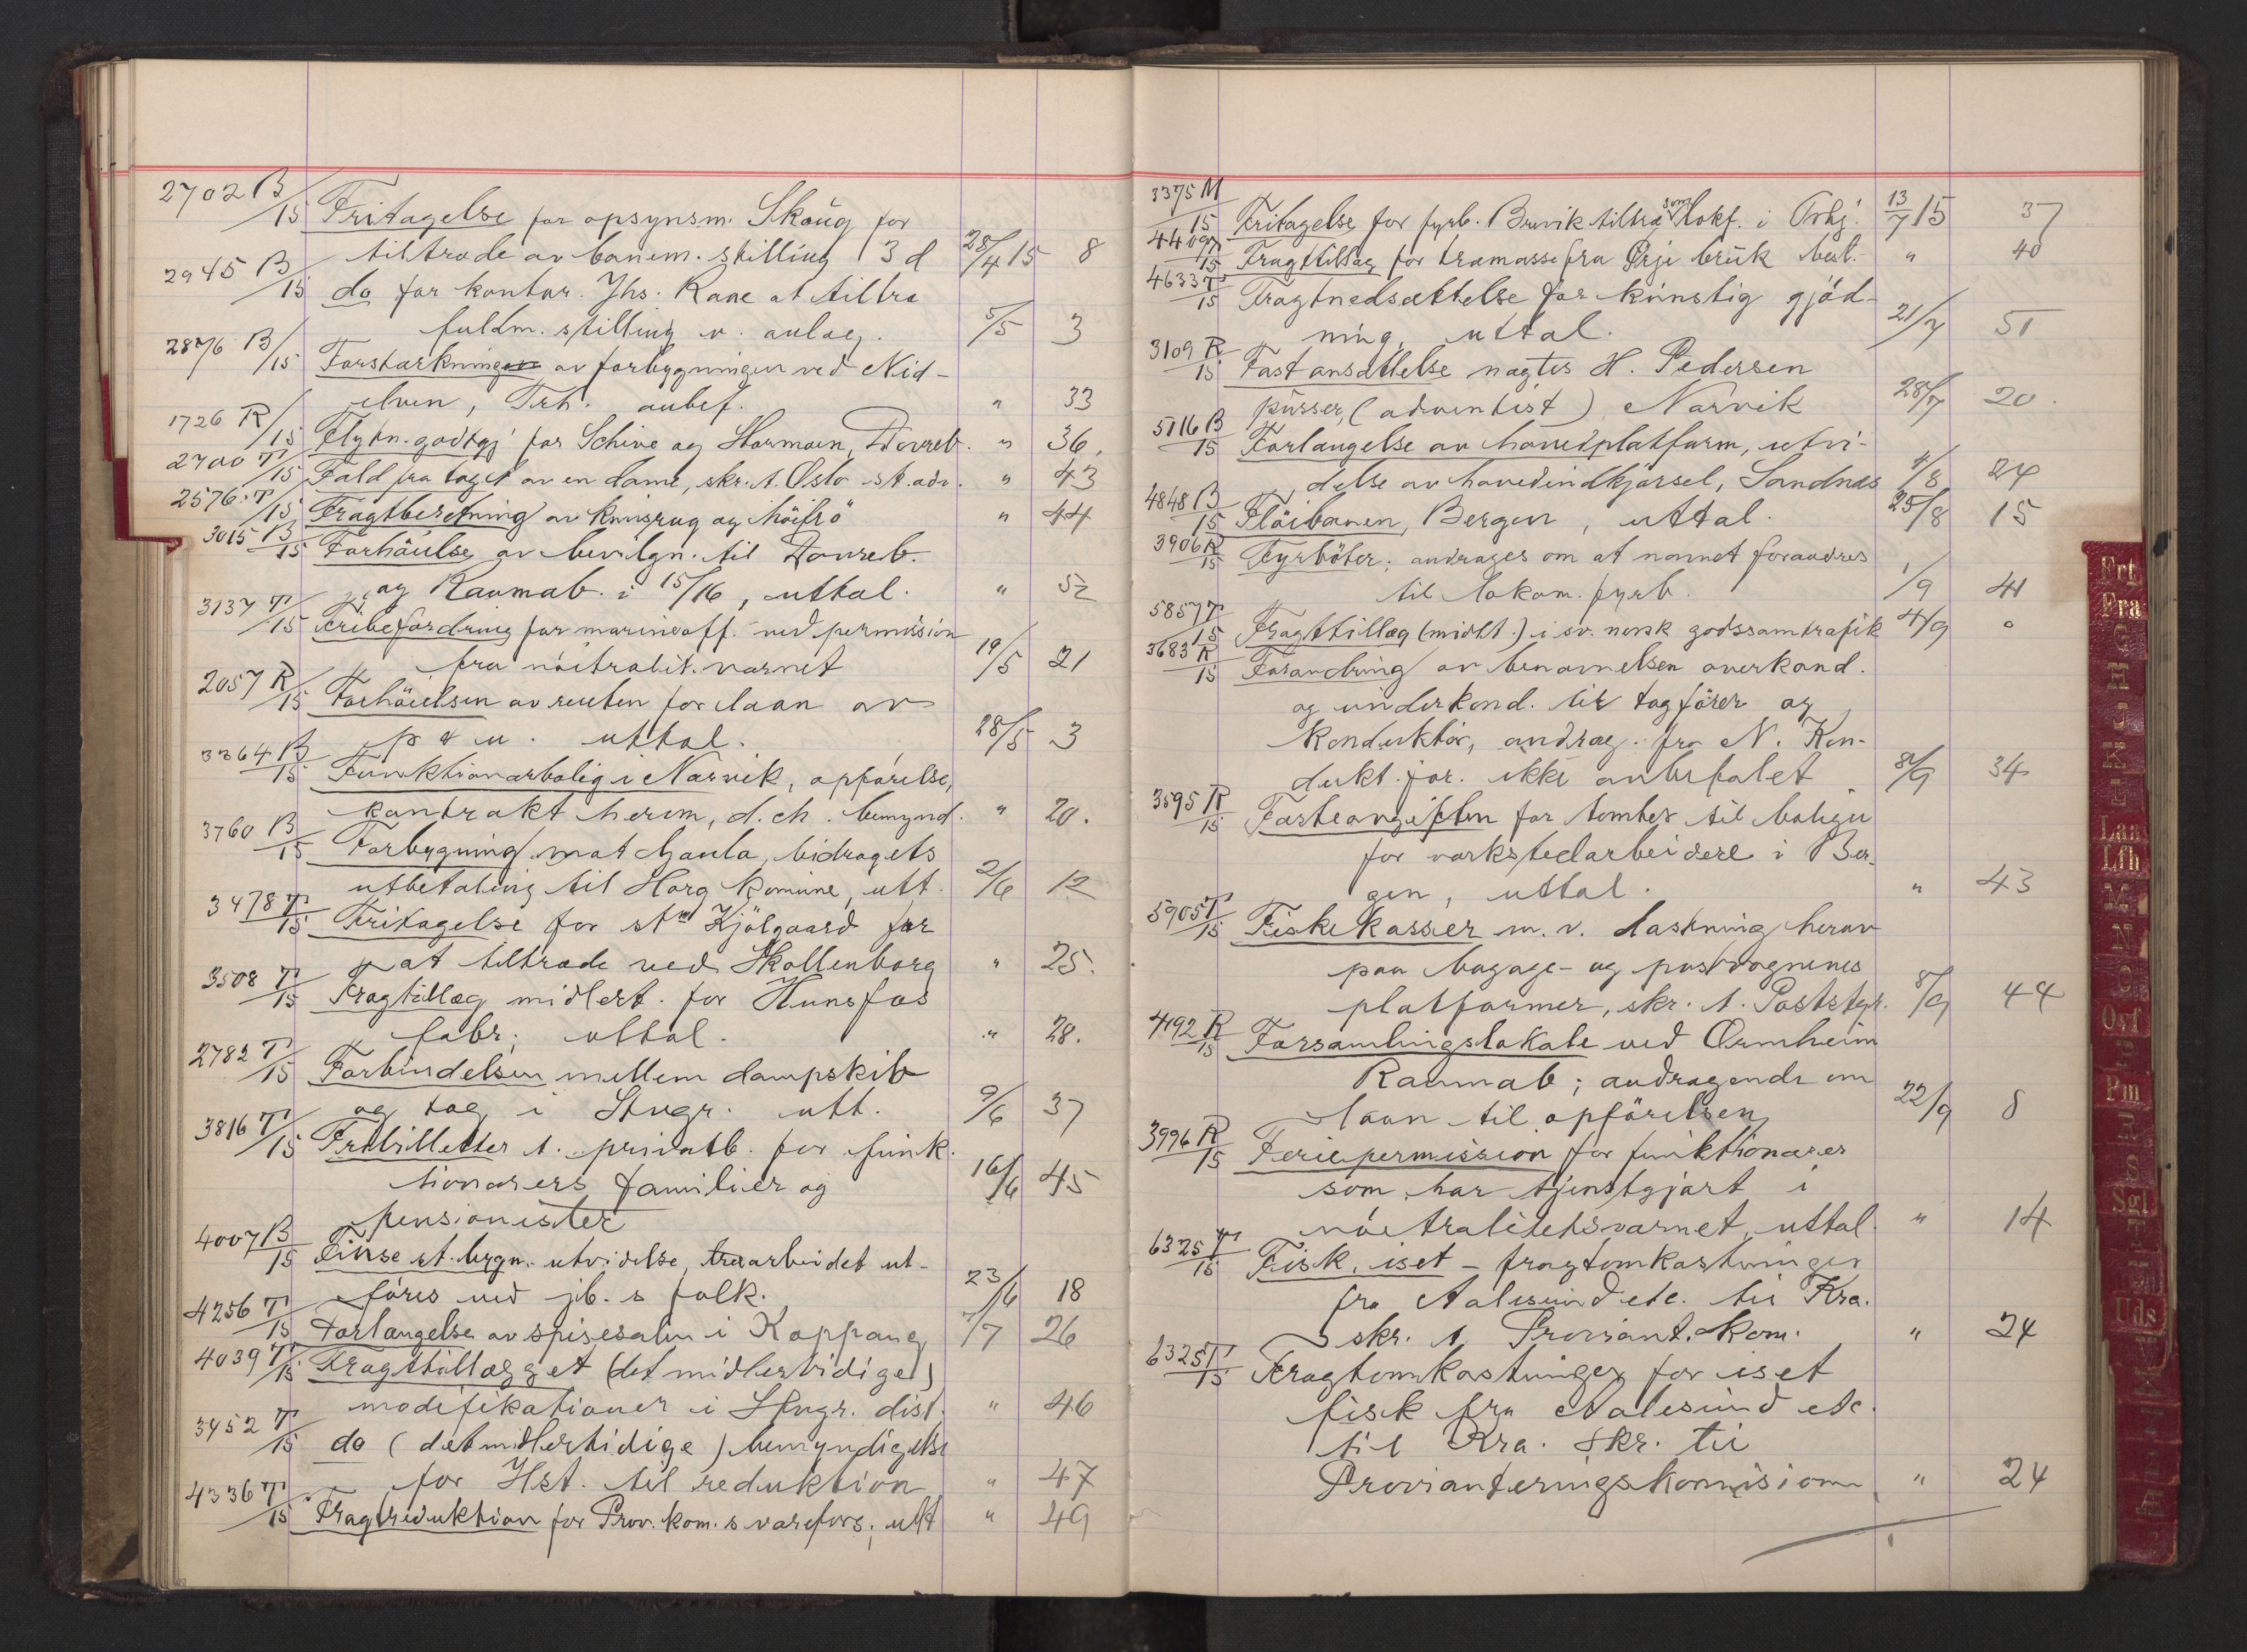 2702 B/15 Fritagelse for opsynsm. Skoug for
tiltræde av banem. stilling 13 d 28/4 15 8
2945 B/15 do for kontor. Jhs. Kane at tiltræ
fuldm. stilling v. anlæg. 5/5 3
2876 B/15 Forstærkningen av forbygningen ved Nid-
elven, Trh. anbef. " 33
1726 R/15 Flytn.godtgj for Schive og Stormoen, Dovreb. " 36.
2700 T/15 Fald fra toget av en dame, skr. t. Oslo st. adv. " 43
2576 T/15 Fragtberetning av knivsrug og höifrö " 44
3015 B/15 Forhöielse av bevilgn. til Dovreb.
og Raumab. i 15/16, uttal. " 52
3137 T/15 Fribefordring for marineoff. ved permission
fra nöitralit. værnet 19/5 21
2057 R/15 Forhöielsen av renten for laan av
p & u. uttal. 28/5 3
3364 B/15 Funktionærbolig i Narvik, opförelse,
kontrakt herom, d. ch. bemynd. " 20.
3760 B/15 Forbygning mot Gaula, bidragets
utbetaling til Horg komune, utt. 2/6 12
3478 T/15 Fritagelse for stm Kjölgaard for
at tiltræde ved Skollenborg " 25.
3508 T/15 Fragtillæg midlert. for Hunsfos
fabr; uttal. " 28.
2782 T/15 Forbindelsen mellem dampskib
og tog i Stvgr. utt. 9/6 37
3816 T/15 Fribilletter t. privatb. for funk.
tionærers familier og 16/6 45
pensionister
4007 B/15 Finse st. bygn. utvidelse, træarbeidet ut-
föres ved jb. s folk. 23/6 18
4256 T/15 Forlængelse av spisesalen i Koppang 7/7 26
4039 T/15 Fragttillægget (det midlertidige)
modifikationer i Stvgr. dist. " 46
3452 T/15 do (det midlertidige) bemyndigelse
for Hst. til reduktion " 47
4336 T/15 Fragtreduktion for Prov. kom. s varefors; utt " 49
3375 M/15 Fritagelse for fyrb. Brevik tiltræ som lokf. i Trhj. 13/7 15 37
4409/15 Fragttillæg for træmasse fra Örje bruk best. " 40
4633 T/15 Fragtnedsættelse for kunstig gjöd-
ning, uttal. 21/7 51
3109 R/15 Fast ansættelse nægtes H. Pedersen
pusser, (adventist) Narvik 28/7 20.
5116 B/15 Forlængelse av hovedplatform, utvi-
delse av hovedindkjörsel, Sandnes 4/8 24
4848 B/15 Flöibanen, Bergen, uttal. 25/8 15
3906 R/15 Fyrböter; andrages om at navnet forandres
til lokom. fyrb. 1/9 41
5857 T/15 Fragttillæg (midlt.) i sv. norsk godssamtrafik 4/9 0
3683 R/15 Forandring av benævnelsen overkond.
og underkond. til togförer og
konduktör, andrag. fra N. Kon-
dukt. for. ikke anbefalet 8/9 34
3595 R/15 Fæsteavgiften for tomter til boliger
for verkstedarbeidere i Ber-
gen, uttal. " 43
5905 T/15 Fiskekasser m. v. lastning herav
paa bagage- og postvognenes
platformer, skr. t. Poststyr. 8/9 44
4192 R/15 Forsamlingslokale ved Ormheim
Raumab; andragende om
laan til opförelsen 22/9 8
3996 R/15 Feriepermission for funktionærer
som har tjenstgjort i
nöitralitetsværnet, uttal. " 14
6325 T/15 Fisk, iset - fragtomkostninger
fra Aalesund etc. til Kra.
skr. t. Proviant. kom. " 24
6325 T/15 Fragtomkostninger for iset
fisk fra Aalesund etc.
til Kra. Skr. til
Provianteringskomisionen " 24
Frt
Fra
G
H
J
K
L
Laa
Lfh
M
N
O
Ovf
P
Pm
R
S
Sgl
T
U
Uds
V